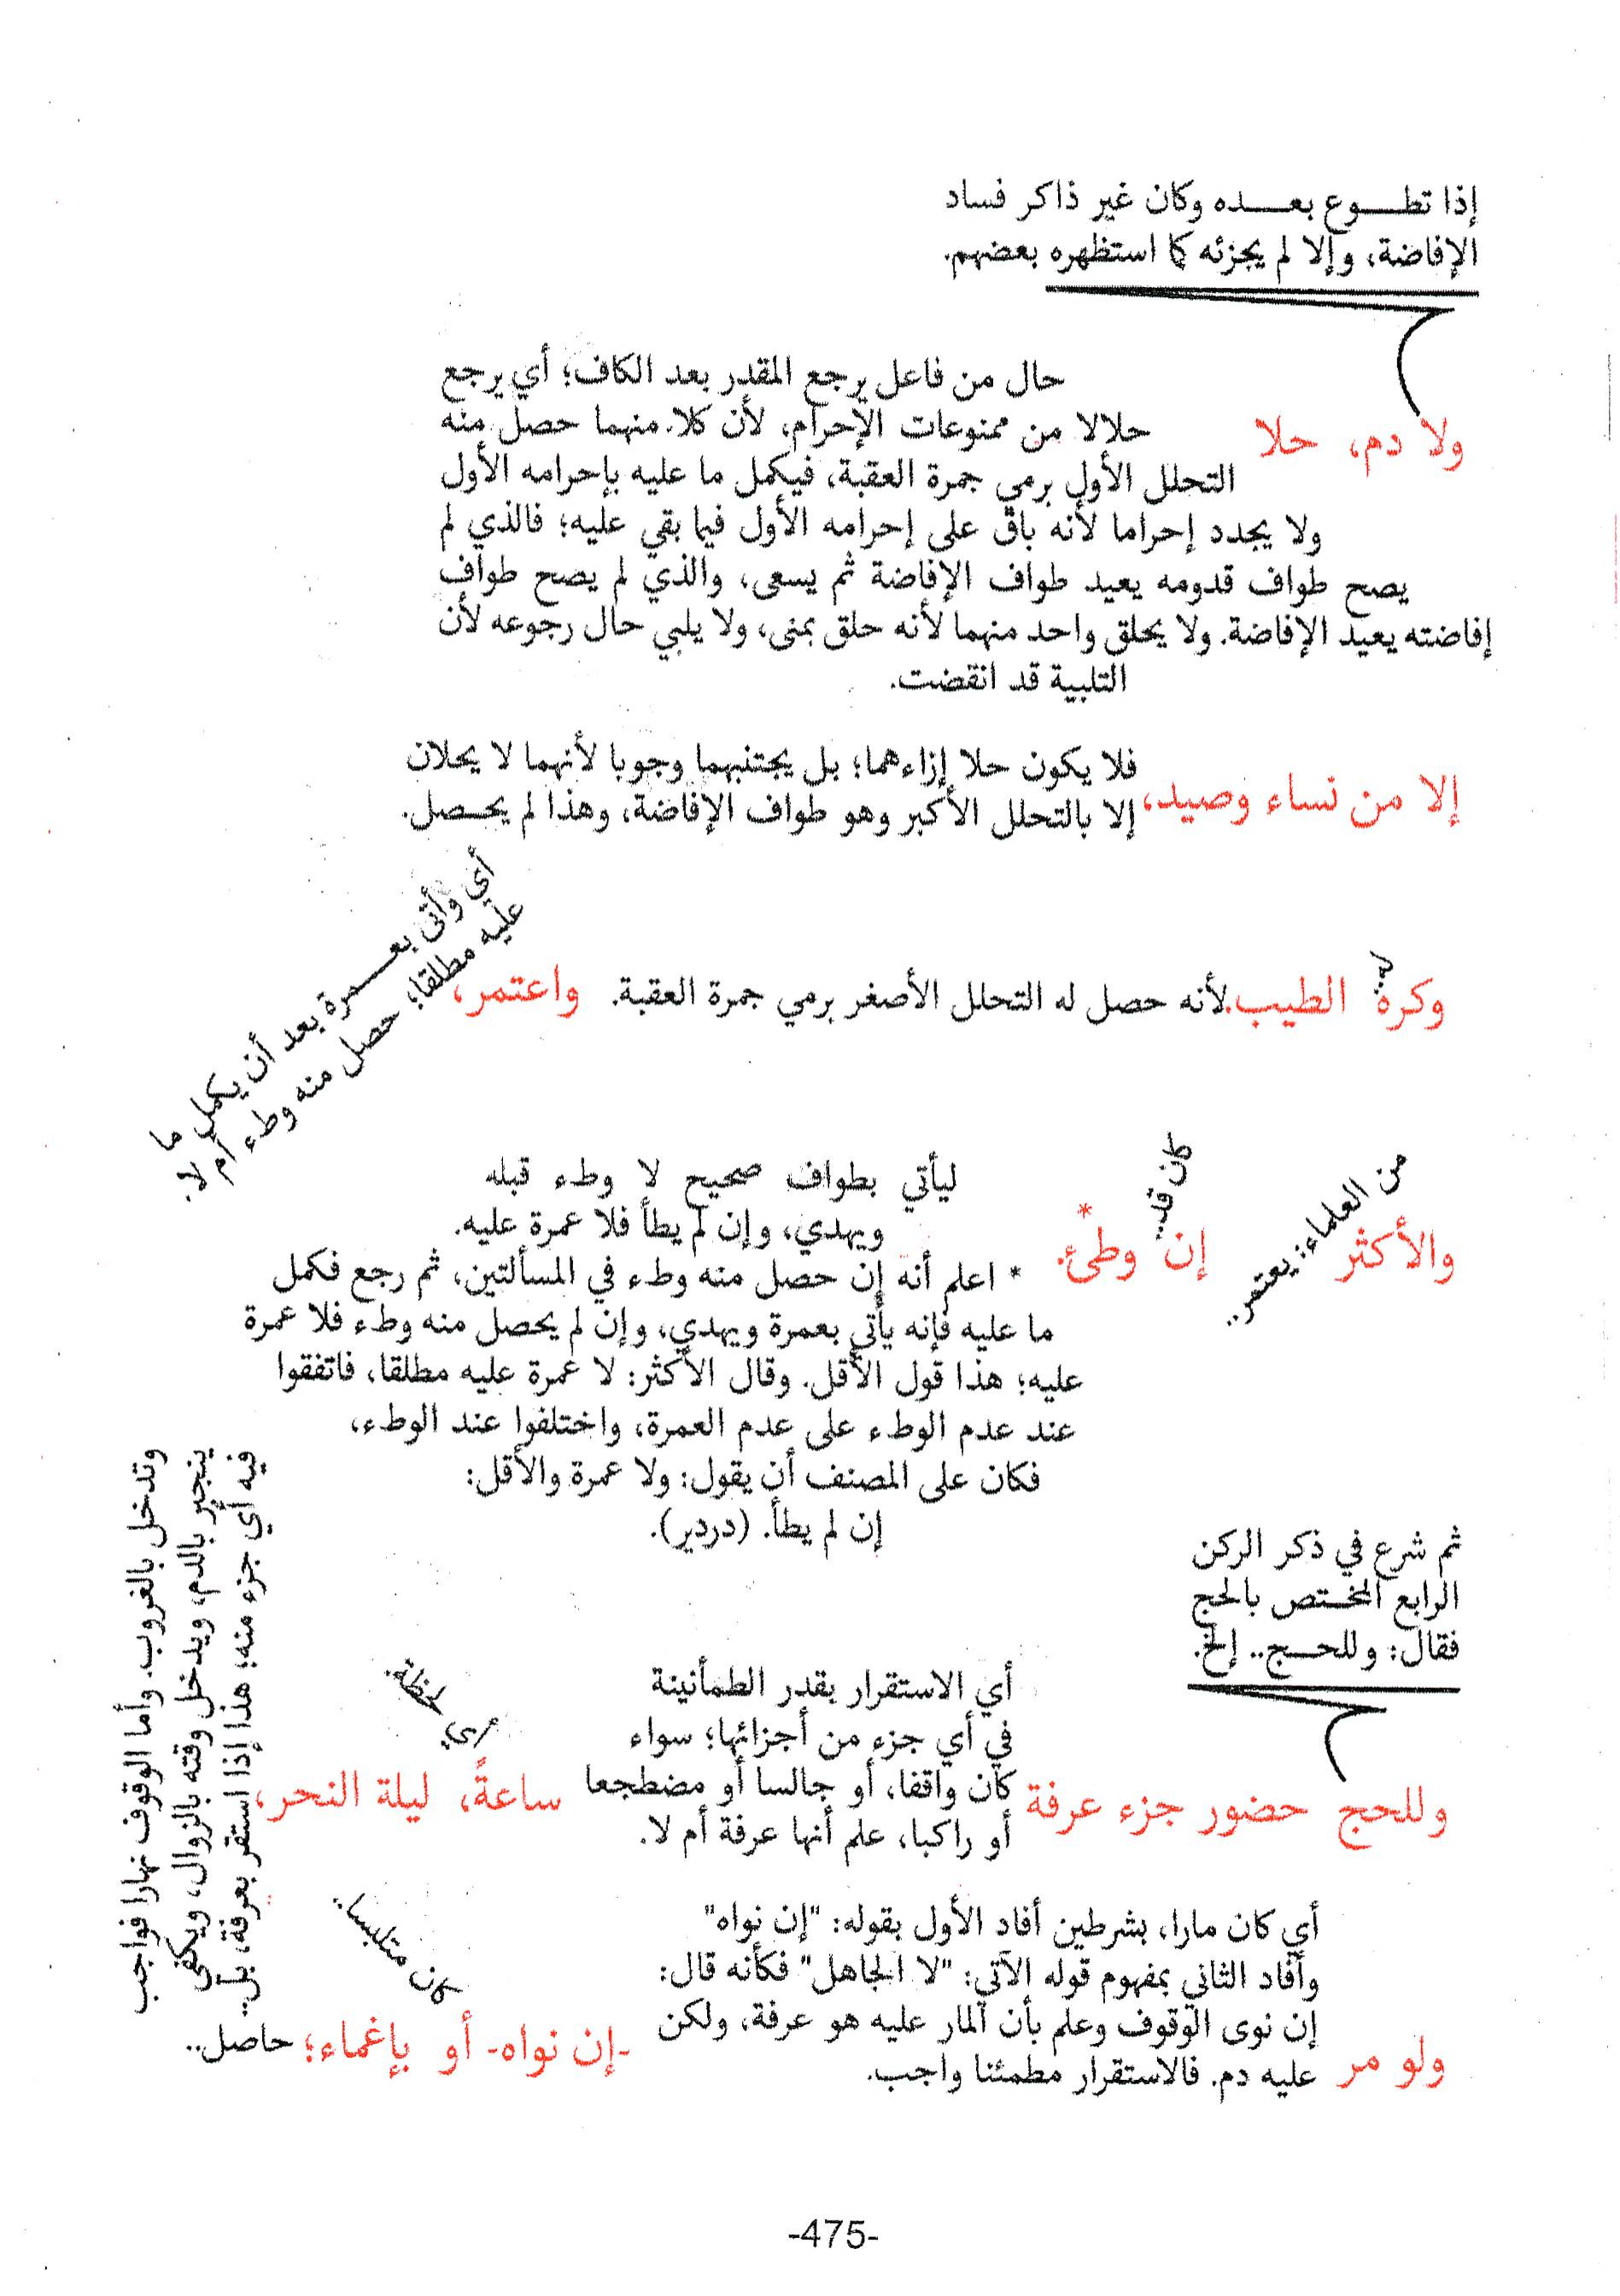 إذا تطوع بعده وكان غير ذاكر فساد
الإفاضة، وإلا لم يجزئه كما استظهره بعضهم.
ولا دم، حلا
حال من فاعل يرجع المقدر بعد الكاف؛ أي يرجع
حلالا من ممنوعات الإحرام، لأن كلا منهما حصل منه
التحلل الأول برمي جمرة العقبة، فيكمل ما عليه بإحرامه الأول
ولا يجدد إحراما لأنه باق على إحرامه الأول فيما بقي عليه؛ فالذي لم
يصح طواف قدومه يعيد طواف الإفاضة ثم يسعى، والذي لم يصح طواف
إفاضته يعيد الإفاضة. ولا يحلق واحد منهما لأنه حلق بمنى، ولا يلبي حال رجوعه لأن
التلبية قد انقضت.
إلا من نساء وصيد،
فلا يكون حلا إزاءهما؛ بل يجتنبهما وجوبا لأنهما لا يحلان
إلا بالتحلل الأكبر وهو طواف الإفاضة، وهذا لم يحصل.
وكره له.. الطيب. لأنه حصل له التحلل الأصغر برمي جمرة العقبة. واعتمر،
أي وأتى بعمرة بعد أن يكمل ما
عليه مطلقا؛ حصل منه وطء أم لا.
والأكثر من العلماء: يعتمر.. إن كان قد.. وطئ.*
ليأتي بطواف صحيح لا وطء قبله
ويهدي، وإن لم يطأ فلا عمرة عليه.
* اعلم أنه إن حصل منه وطء في المسألتين، ثم رجع فكمل
ما عليه فإنه يأتي بعمرة ويهدي، وإن لم يحصل منه وطء فلا عمرة
عليه؛ هذا قول الأقل. وقال الأكثر: لا عمرة عليه مطلقا، فاتفقوا
عند عدم الوطء على عدم العمرة، واختلفوا عند الوطء،
فكان على المصنف أن يقول: ولا عمرة والأقل:
إن لم يطأ. (دردير).
ثم شرع في ذكر الركن
الرابع المختص بالحج
فقال: وللحج.. إلخ.
وللحج حضور جزء عرفة
أي الاستقرار بقدر الطمأنينة
في أي جزء من أجزائها؛ سواء
كان واقفا، أو جالسا أو مضطجعا
أو راكبا، علم أنها عرفة أم لا.
ساعةً، أي لحظة.. ليلة النحر،
وتدخل بالغروب. وأما الوقوف نهارا فواجب
ينجبر بالدم، ويدخل وقته بالزوال، ويكفي
فيه أي جزء منه؛ هذا إذا استقر بعرفة، بل..
ولو مر
أي كان مارا، بشرطين أفاد الأول بقوله: "إن نواه"
وأفاد الثاني بمفهوم قوله الآتي: "لا الجاهل" فكأنه قال:
إن نوى الوقوف وعلم بأن المار عليه هو عرفة، ولكن
عليه دم. فالاستقرار مطمئنا واجب.
-إن نواه- أو كان متلبسا.. بإغماء؛ حاصل..
-475-